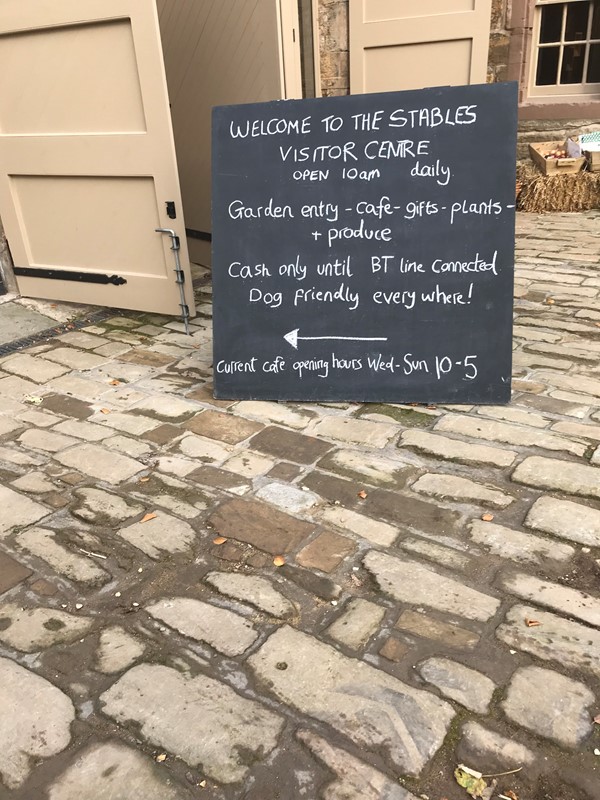 WELCOME TO THE STABLES
VISITOR CENTRE
OPEN 10am daily
Garden entry - cafe - gifts - plants -
+ produce
Cash only until BT line connected
Dog friendly everywhere!
Current cafe opening hours Wed-Sun 10-5